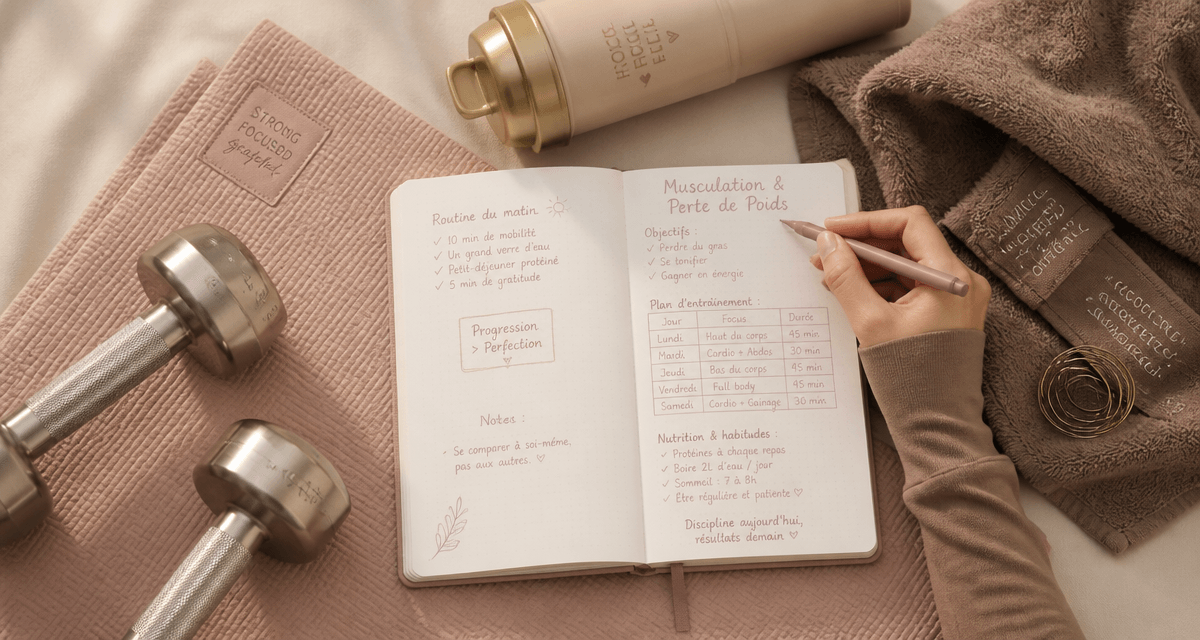 STRONG
FOCUSED
grateful
Routine du matin
✓ 10 min de mobilité
✓ Un grand verre d'eau
✓ Petit-déjeuner protéiné
✓ 5 min de gratitude
Progression
> Perfection
Notes :
- Se comparer à soi-même,
pas aux autres. ♡
Musculation &
Perte de Poids
Objectifs :
✓ Perdre du gras
✓ Se tonifier
✓ Gagner en énergie
Plan d'entraînement :
Jour Focus Durée
Lundi Haut du corps 45 min
Mardi Cardio + Abdos 30 min
Jeudi Bas du corps 45 min
Vendredi Full body 45 min
Samedi Cardio + Gainage 30 min
Nutrition & habitudes :
✓ Protéines à chaque repas
✓ Boire 2L d'eau / jour
✓ Sommeil : 7 à 8h
✓ Être régulière et patiente ♡
Discipline aujourd'hui,
résultats demain ♡